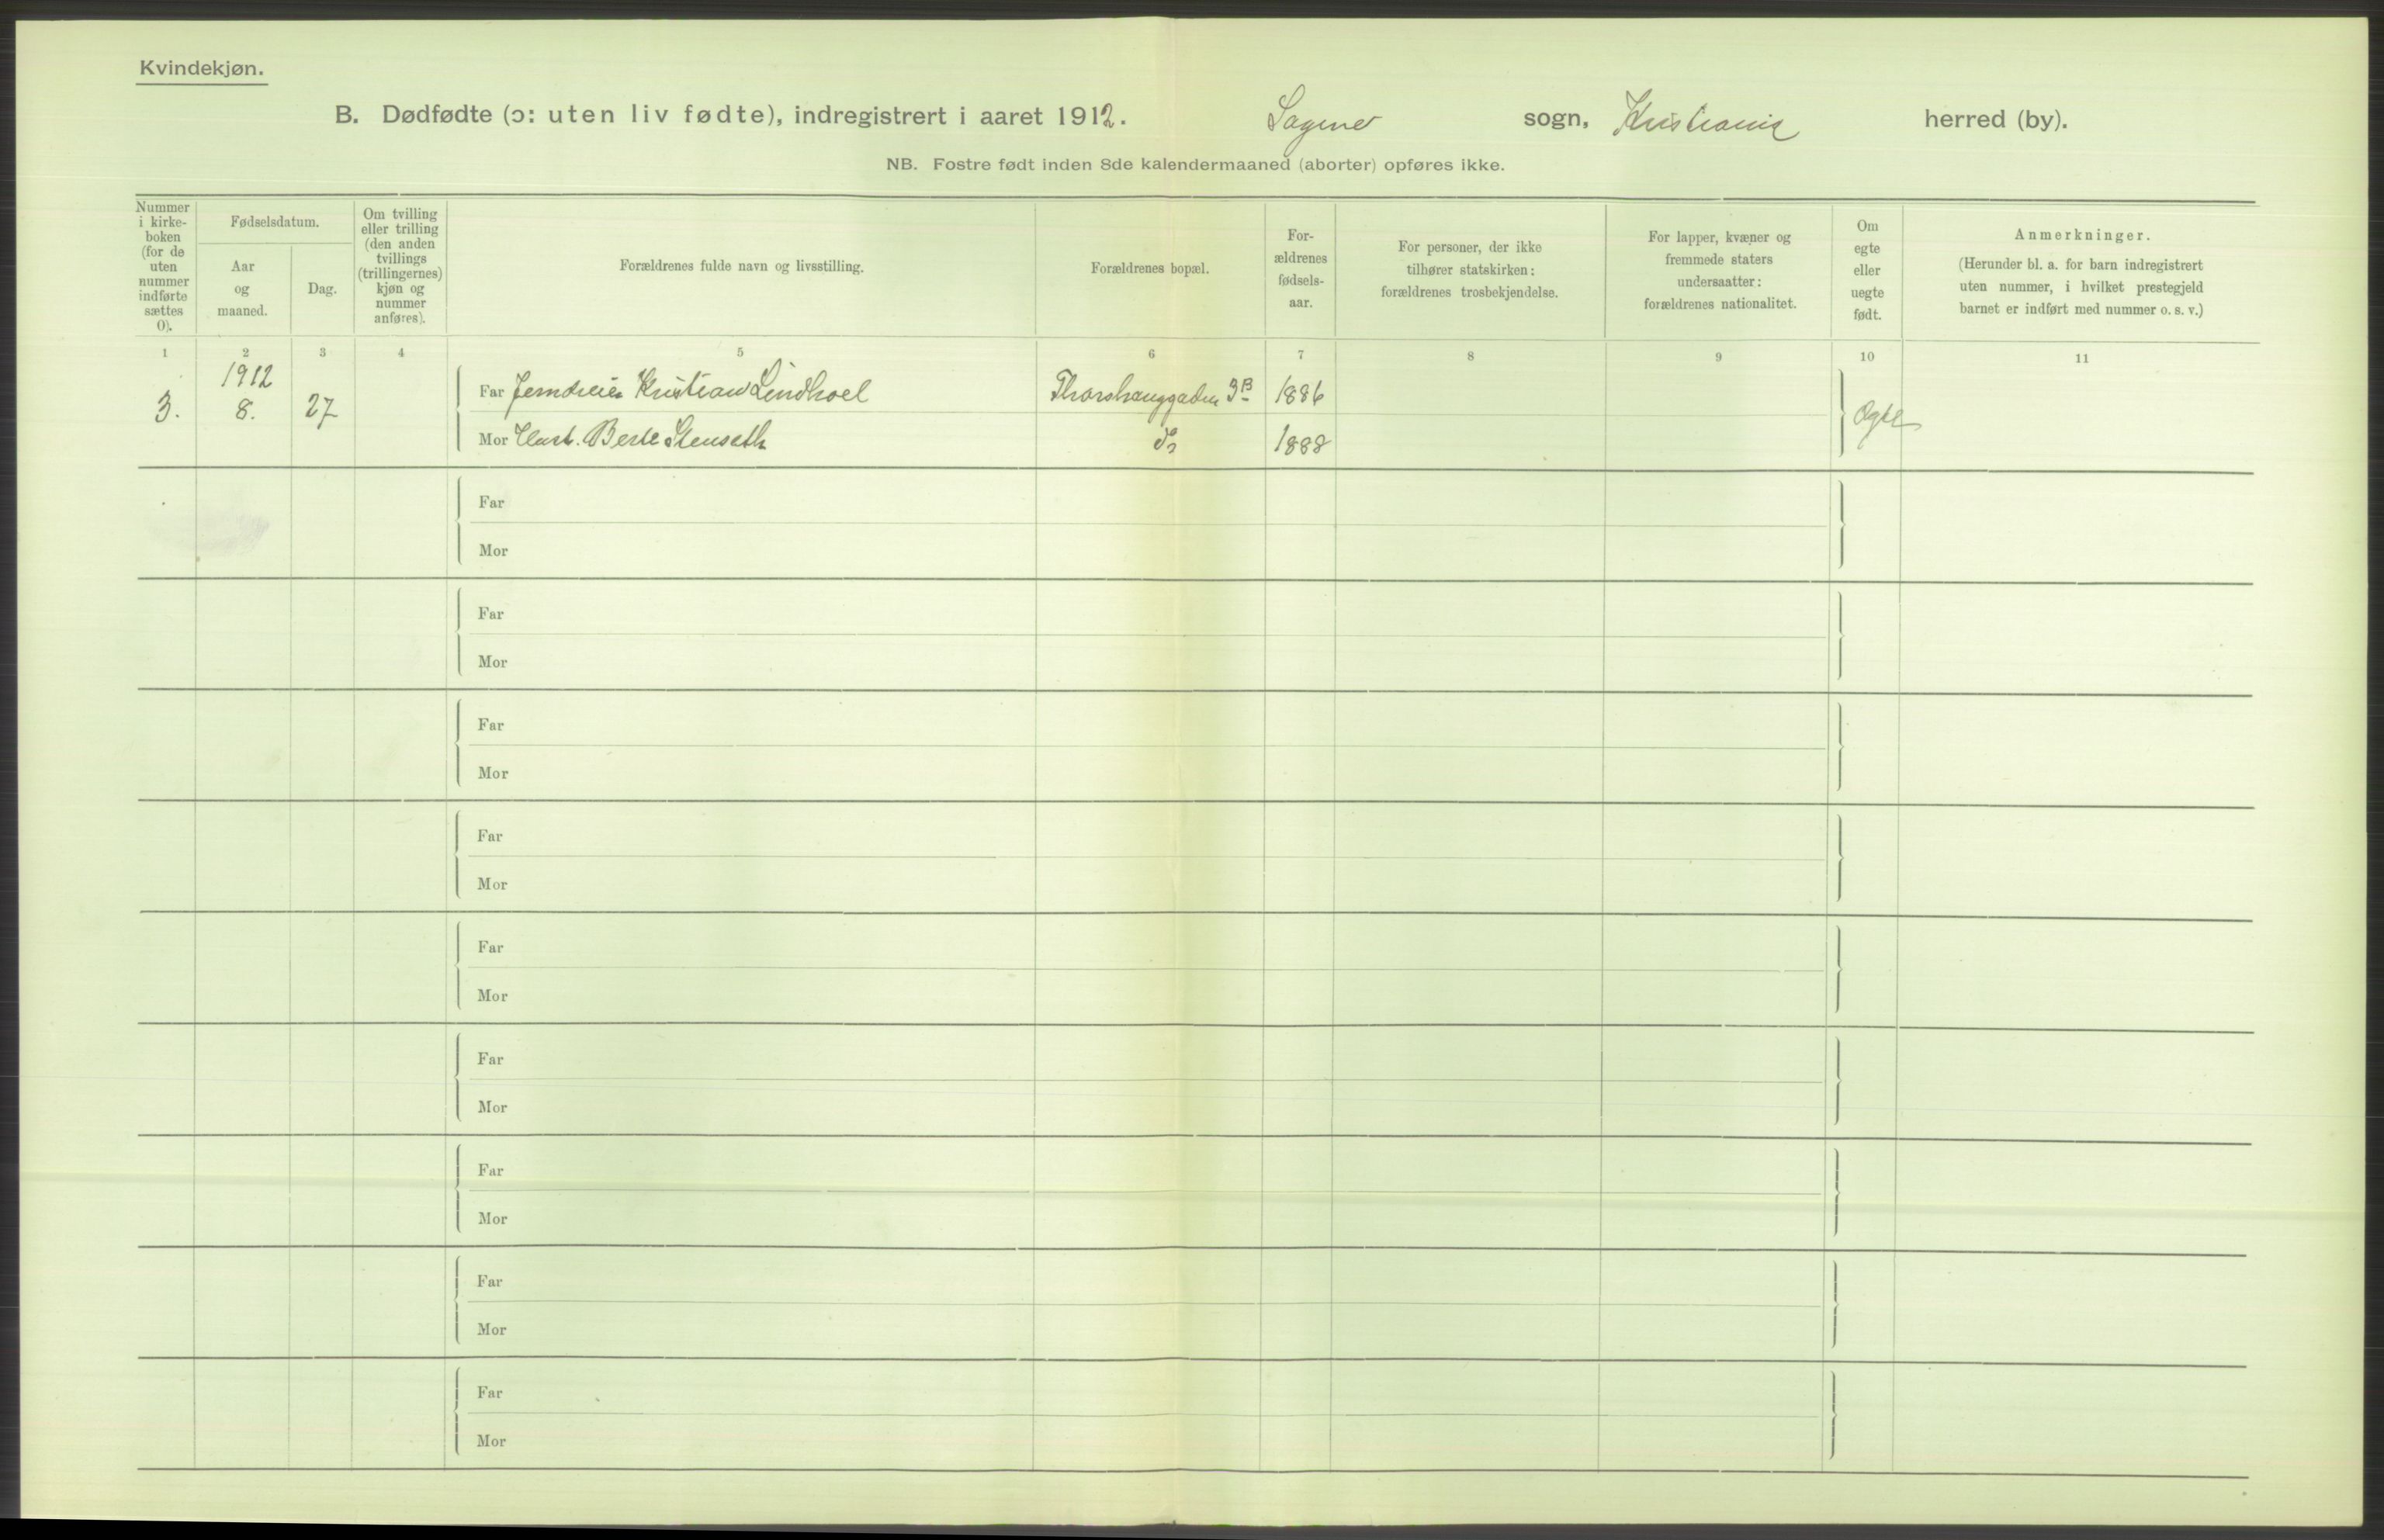 Kvindekjøn.
B. Dødfødte (ɔ: uten liv fødte), indregistrert i aaret 1912. Sagene sogn, Kristiania herred (by).
NB. Fostre født inden 8de kalendermaaned (aborter) opføres ikke.
Nummer i kirke-boken (for de uten nummer indførte sættes 0).
Fødselsdatum.
Aar og maaned.
Dag.
Om tvilling eller trilling (den anden tvillings (trillingernes) kjøn og nummer anføres).
Forældrenes fulde navn og livsstilling.
Forældrenes bopæl.
For-ældrenes fødsels-aar.
For personer, der ikke tilhører statskirken: forældrenes trosbekjendelse.
For lapper, kvæner og fremmede staters undersaatter: forældrenes nationalitet.
Om egte eller uegte født.
Anmerkninger.
(Herunder bl. a. for barn indregistrert uten nummer, i hvilket prestegjeld barnet er indført med nummer o. s. v.)
1 2 3 4 5 6 7 8 9 10 11
1912
3. 8. 27
Far Jerndreier Kristian Lindhoel Thorshauggaden 3B 1886
Mor Hust. Berte Stenseth Do 1888
Ogte
Far
Mor
Far
Mor
Far
Mor
Far
Mor
Far
Mor
Far
Mor
Far
Mor
Far
Mor
Far
Mor